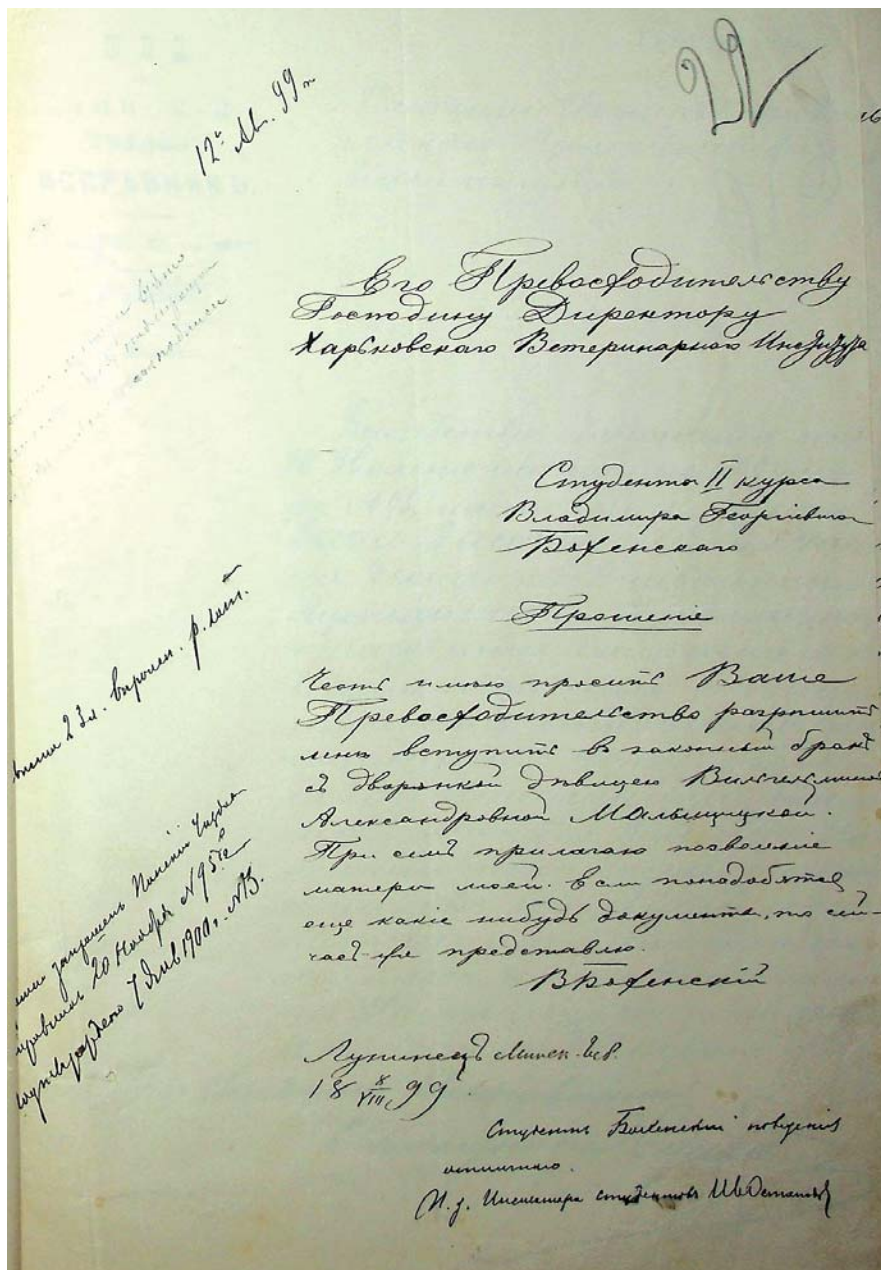 22
12го Ав. 99 г.
Его Превосходительству
Господину Директору
Харьковскаго Ветеринарнаго Института
Студента II курса
Владимира Георгіевича
Бохенскаго
Прошеніе
Честь имѣю просить Ваше
Превосходительство разрѣшить
мнѣ вступить въ законный бракъ
съ дворянкой дѣвицею Вильгельминой
Александровной Мальщицкой.
При семъ прилагаю позволеніе
матери моей. Если понадобятся
еще какіе нибудь документы, то сей-
часъ-же представлю.
В Бохенскій
Лунинецъ Минск. губ.
18 8/VIII 99
Студентъ Бохенскій поведенія
отличнаго.
И. д. Инспектора студентовъ
20 Ноября № 95
7 Янв 1900 г. №